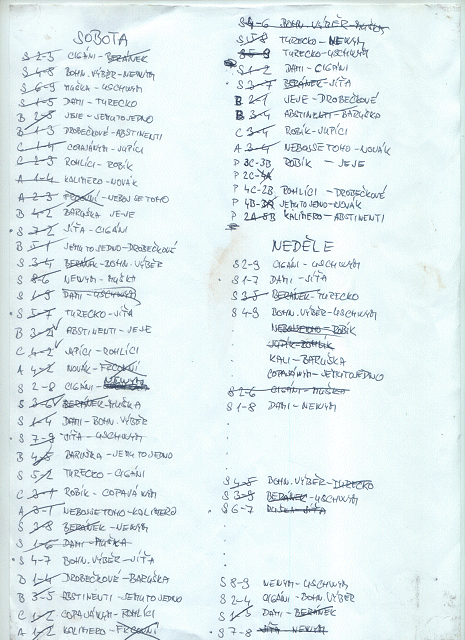 SOBOTA
S 2-3 CIGÁNI - BERÁNEK
S 4-8 BOHN. VÝBĚR - NEWYM
S 6-9 MUŠKA - USCHWYM
S 1-5 DAMI - TURECKO
B 2-5 JEJE - JEMUTOJEDNO
B 1-3 DROBEČKOVÉ - ABSTINENTI
C 1-4 COPAJÁNYM - JUPÍCI
C 2-3 ROHLÍCI - ROBÍK
A 1-4 KALIMERO - NOVÁK
A 2-3 - NEBOJSETOHO
B 4-2 BARUŠKA JEJE
S 7-2 JÍŤA - CIGÁNI
B 5-1 JEMUTOJEDNO - DROBEČKOVÉ
S 3-4 BERÁNEK - BOHN. VÝBĚR
S 8-6 NEWYM - MUŠKA
S 1-9 DAMI - USCHWYM
S 5-7 TURECKO - JÍŤA
B 3-2 ABSTINENTI - JEJE
C 4-2 JUPÍCI - ROHLÍCI
A 4-2 NOVÁK -
S 2-8 CIGÁNI - NEWYM
S 3-6 BERÁNEK - MUŠKA
S 1-4 DAMI - BOHN. VÝBĚR
S 7-9 JÍŤA - USCHWYM
B 4-5 BARUŠKA - JEMUTOJEDNO
S 5-2 TURECKO - CIGÁNI
C 3-1 ROBÍK - COPAJÁNYM
A 3-1 NEBOJSETOHO - KALIMERO
S 3-8 BERÁNEK - NEWYM
S 1-6 DAMI - MUŠKA
S 4-7 BOHN. VÝBĚR - JÍŤA
B 1-4 DROBEČKOVÉ - BARUŠKA
B 3-5 ABSTINENTI - JEMUTOJEDNO
C 1-2 COPAJÁNYM - ROHLÍCI
A 1-2 KALIMERO -
S 4-6 BOHN. VÝBĚR - MUŠKA
S 5-8 TURECKO - NEWYM
S 5-9 TURECKO - USCHWYM
S 1-2 DAMI - CIGÁNI
S 3-7 BERÁNEK - JÍŤA
B 2-1 JEJE - DROBEČKOVÉ
B 3-4 ABSTINENTI - BARUŠKA
C 3-4 ROBÍK - JUPÍCI
A 3-4 NEBOJSETOHO - NOVÁK
P 3C-3B ROBÍK - JEJE
P 2C-
P 4C-2B ROHLÍCI - DROBEČKOVÉ
P 4B- JEMUTOJEDNO - NOVÁK
P 2A-5B KALIMERO - ABSTINENTI
NEDĚLE
S 2-9 CIGÁNI - USCHWYM
S 1-7 DAMI - JÍŤA
S 3-5 BERÁNEK - TURECKO
S 4-9 BOHN. VÝBĚR - USCHWYM
ROBÍK
KALI - BARUŠKA
COPAJÁNYM - JEMUTOJEDNO
S 2-6 CIGÁNI - MUŠKA
S 1-8 DAMI - NEWYM
S 4-5 BOHN. VÝBĚR - TURECKO
S 3-9 BERÁNEK - USCHWYM
S 6-7 MUŠKA - JÍŤA
S 8-9 NEWYM - USCHWYM
S 2-4 CIGÁNI - BOHN. VÝBĚR
S 1-3 DAMI - BERÁNEK
S 7-8 JÍŤA - NEWYM